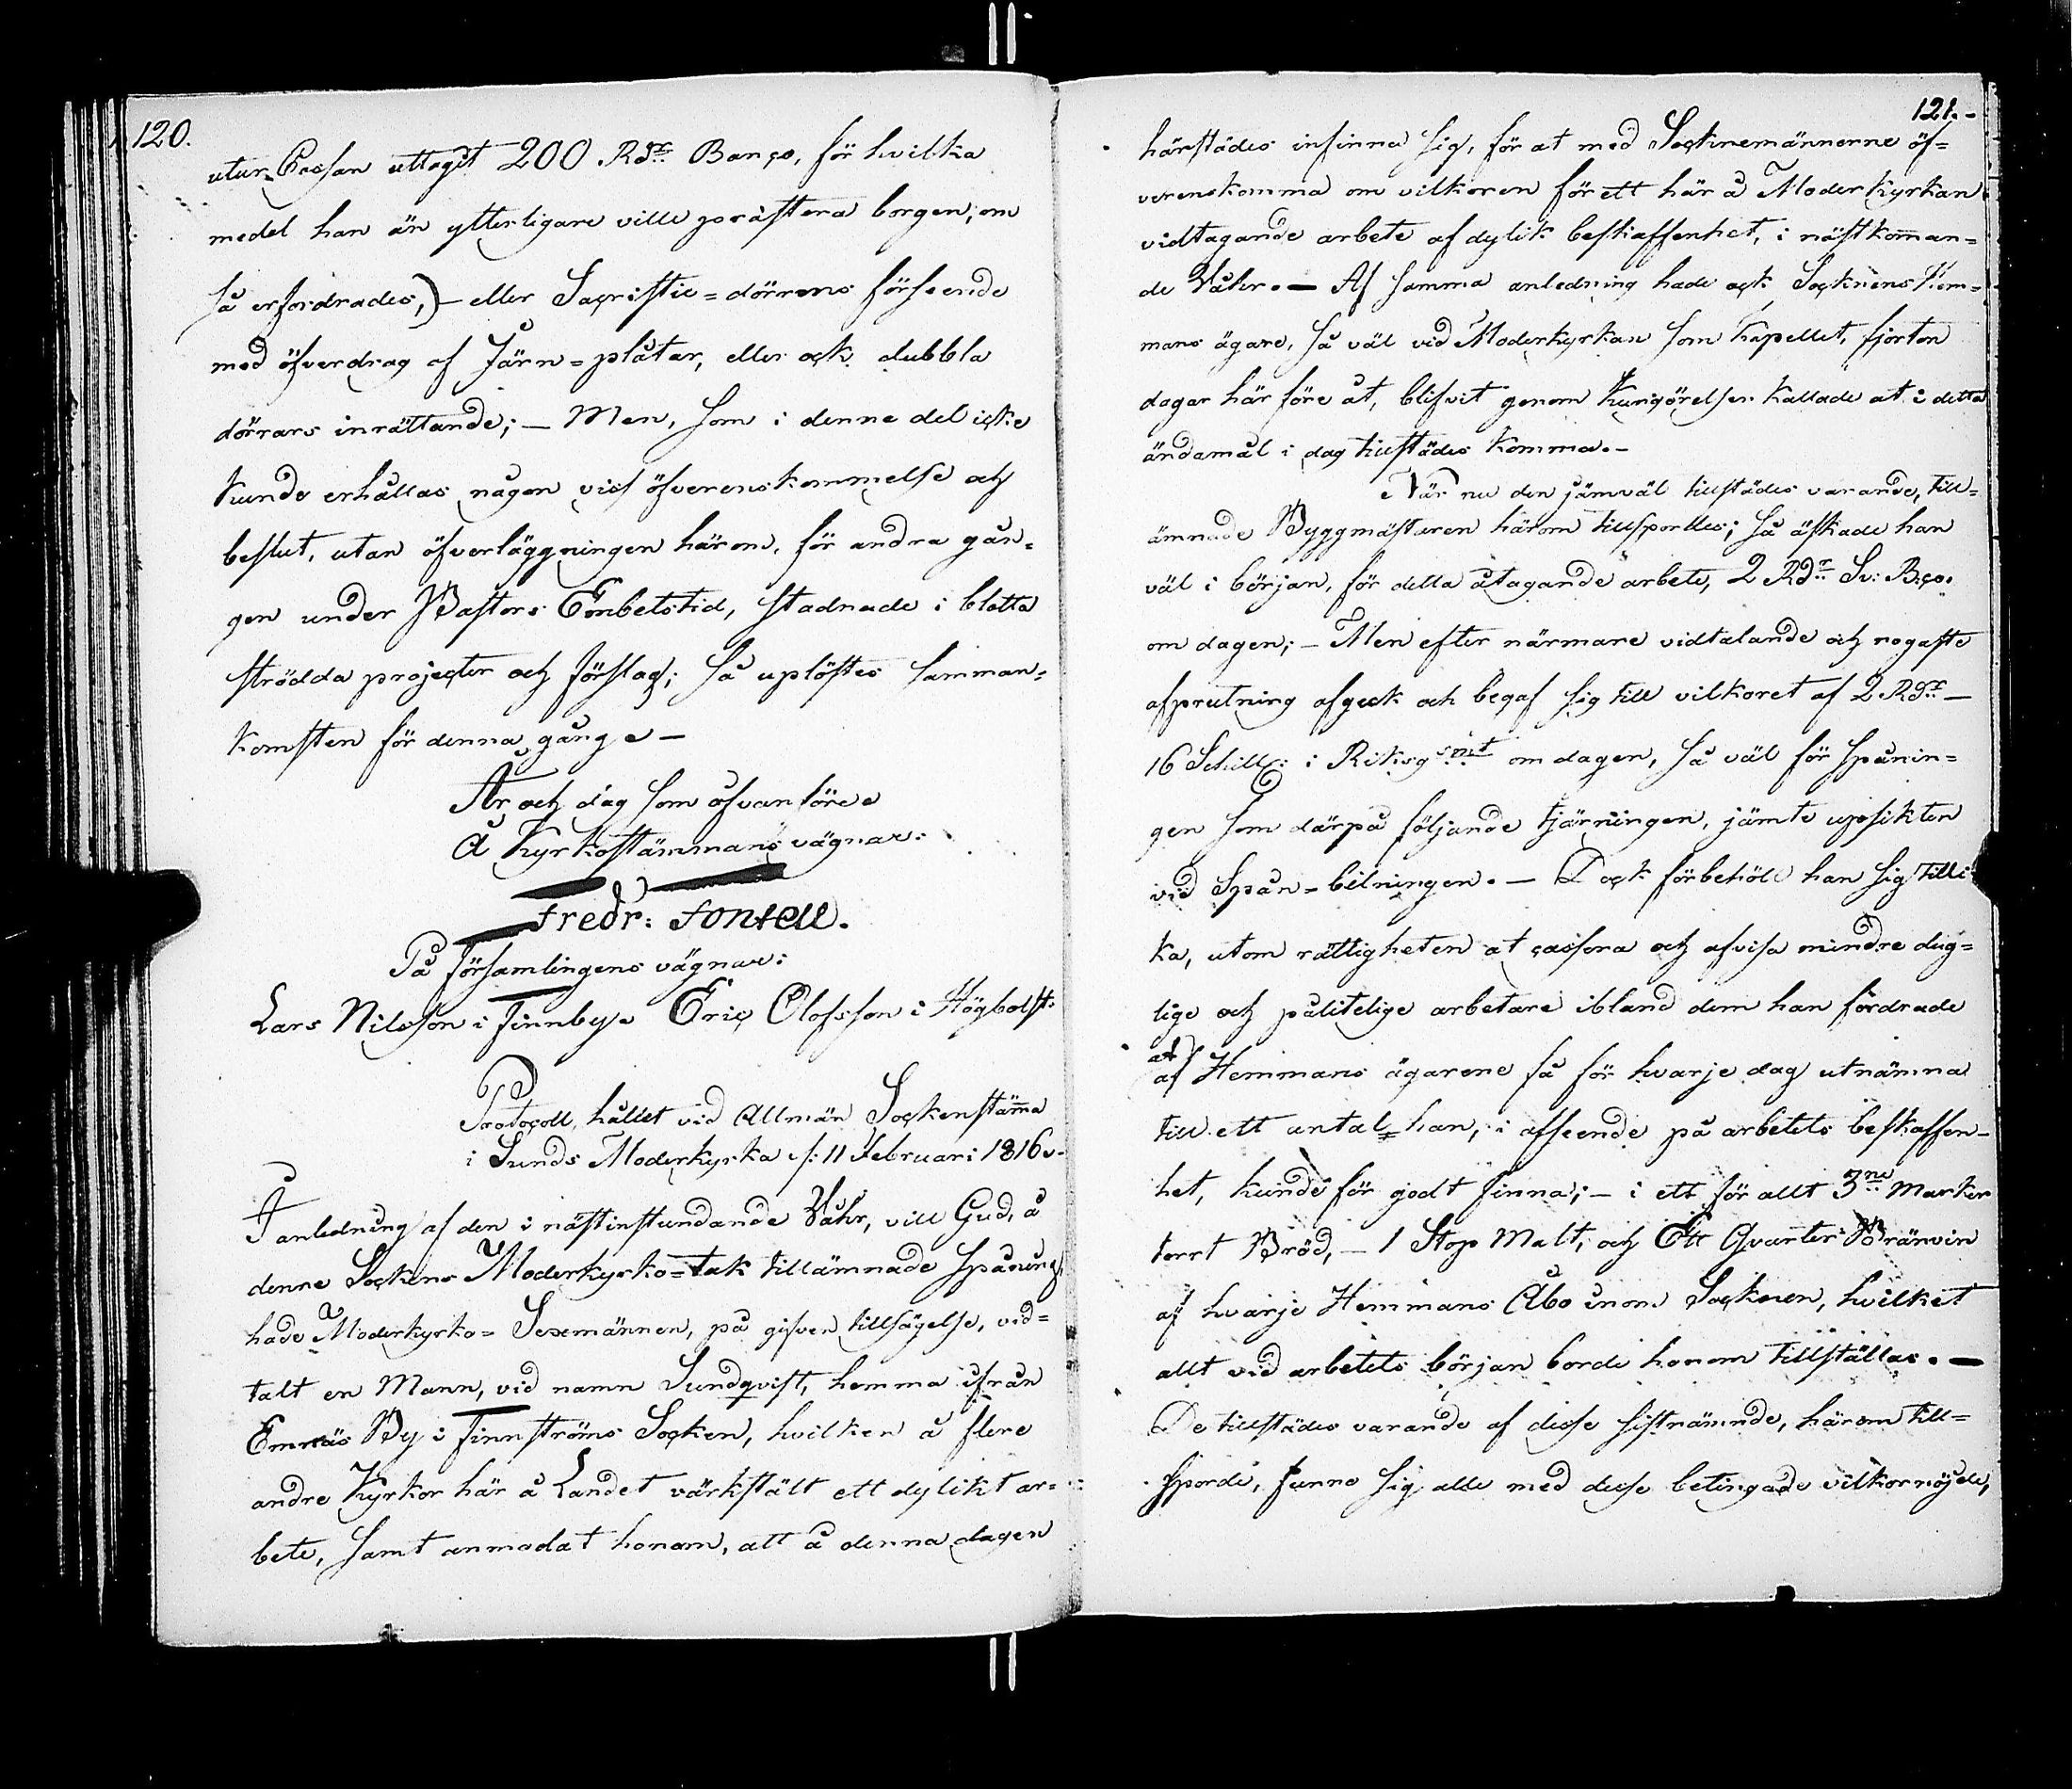 120.
utur Cassan uttagit 200 Rdr Banço, för hvilka
medel han än ytterligare ville præstera borgen, om
så erfordrades,) – eller Sacristie=dörrens förseende
med öfverdrag af Järn=plåtar, eller ock dubbla
dörrars inrättande; – Men, som i denne del icke
kunde erhållas någon viss öfverenskommelse och
beslut, utan öfverläggningen härom, för andra gån=
gen under Pastors Embetstid, stadnade i blotta
strödda projecter och förslag; så uplöstes samman=
komsten för denna gång. –
År och dag som ofvanföre.
Å Kyrkostämmans vägnar:
Fredr: Fontell.
På församlingens vägnar:
Lars Nilsson i Finnby. Eric Olofsson i Högbolst:
Protocoll, hållet vid Allmän Sockenstäm̄a
i Sunds Moderkyrka d: 11 Februari 1816. –
I anledning af den i nästinstundande Våhr, vill Gud, å
denne Sockens Moderkyrko=tak tillämnade spåning,
hade Moderkyrko=Sexmännen, på gifven tillsägelse, vid=
talt en Mann, vid namn Sundqvist, hemma ifrån
Emnäs By i Finnströms Socken, hvilken å flere
andre Kyrkor här å Landet värkstält ett dylikt ar=
bete, samt anmodat honom, att å denna dagen
121. –
härstädes infinna sig, för at med Socknemännerne öf=
verenskomma om vilkoren för ett här å Moderkyrkan
vidtagande arbete af dylik beskaffenhet, i nästkom̄an=
de Våhr. – Af samma anledning hade ock Socknens Hem=
mans ägare, så väl vid Moderkyrkan som Kapellet, fjorton
dagar här före åt, blifvit genom Kungörelser kallade at i detta
ändamål i dag tillstädes komma. –
När nu den jämväl tillstädes varande, till=
ämnade Byggmästaren härom tillspordes; så äskade han
väl i början, för detta åtagande arbete, 2 Rdr Sv: Bço.
om dagen; – Men efter närmare vidtalande och nogaste
afprutning afgeck och begaf sig till vilkoret af 2 Rdr –
16 Schill: i Riksg:mt om dagen, så väl för spånin=
gen som därpå följande tjärningen, jämte upsikten
vid Spån=bilningen. – Dock förbehöll han sig tilli=
ka, utom rättigheten at cassera och afvisa mindre dug=
lige och pålitelige arbetare ibland dem han fordrade
at
af Hemmans ägarene få för hvarje dag utnämna
till ett antal han, i afseende på arbetets beskaffen=
het, kunde för godt finna; – i ett för allt 3ne Marker
torrt Bröd, – 1 Stop Malt, och Ett Qvarter Bränvin
af hvarje Hemmans Åbo inom Socknen, hvilket
allt vid arbetets början borde honom tillställas. –
De tillstädes varande af desse sistnämnde, härom till=
sporde, funno sig alle med desse betingade vilkor nöjde,